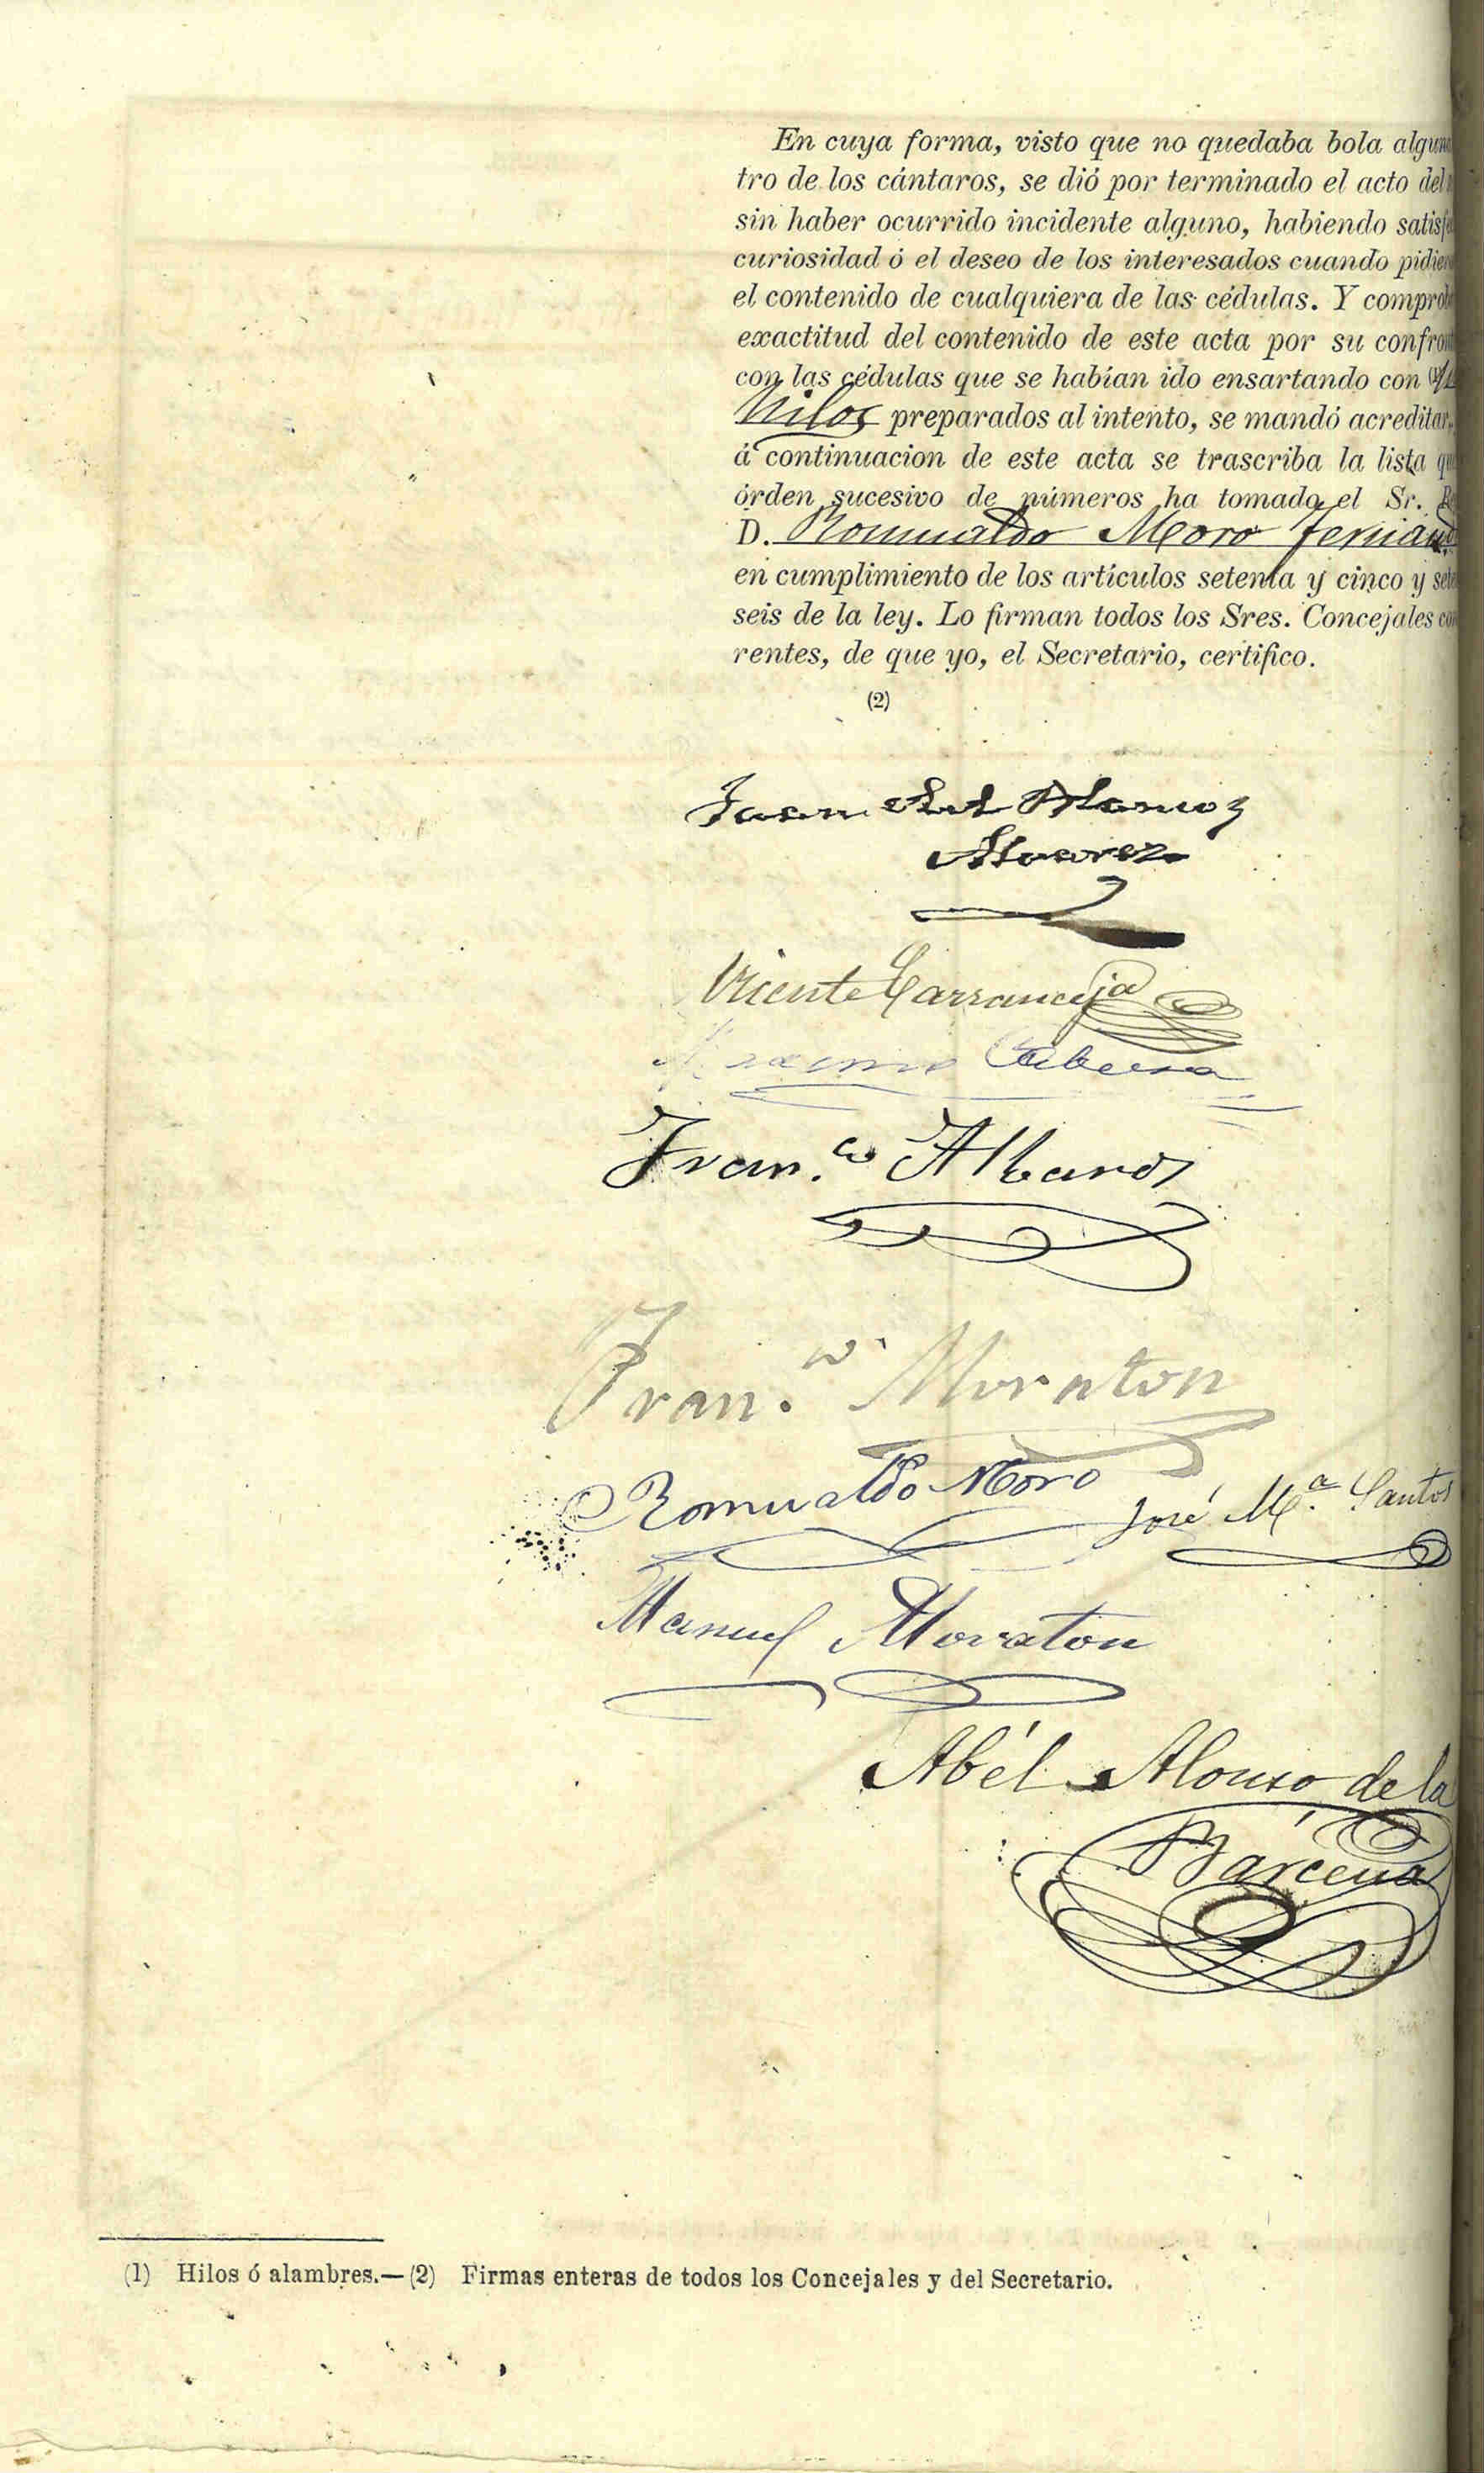 En cuya forma, visto que no quedaba bola alguna
tro de los cántaros, se dió por terminado el acto del
sin haber ocurrido incidente alguno, habiendo satisfe
curiosidad ó el deseo de los interesados cuando pidier
el contenido de cualquiera de las cédulas. Y comprob
exactitud del contenido de este acta por su confront
con las cédulas que se habían ido ensartando con (1)
hilos preparados al intento, se mandó acreditar,
á continuacion de este acta se trascriba la lista qu
órden sucesivo de números ha tomado el Sr.
D. Romualdo Moro Fernand
en cumplimiento de los artículos setenta y cinco y sete
seis de la ley. Lo firman todos los Sres. Concejales con
rentes, de que yo, el Secretario, certifico.
(2)
Juan
Alvarez
Vicente Carranceja
Fran.co Albaro
Fran.co Moraton
Romualdo Moro
José M.a Santos
Manuel Moraton
Abél Alonso de la
Bárcena
(1) Hilos ó alambres.—(2) Firmas enteras de todos los Concejales y del Secretario.